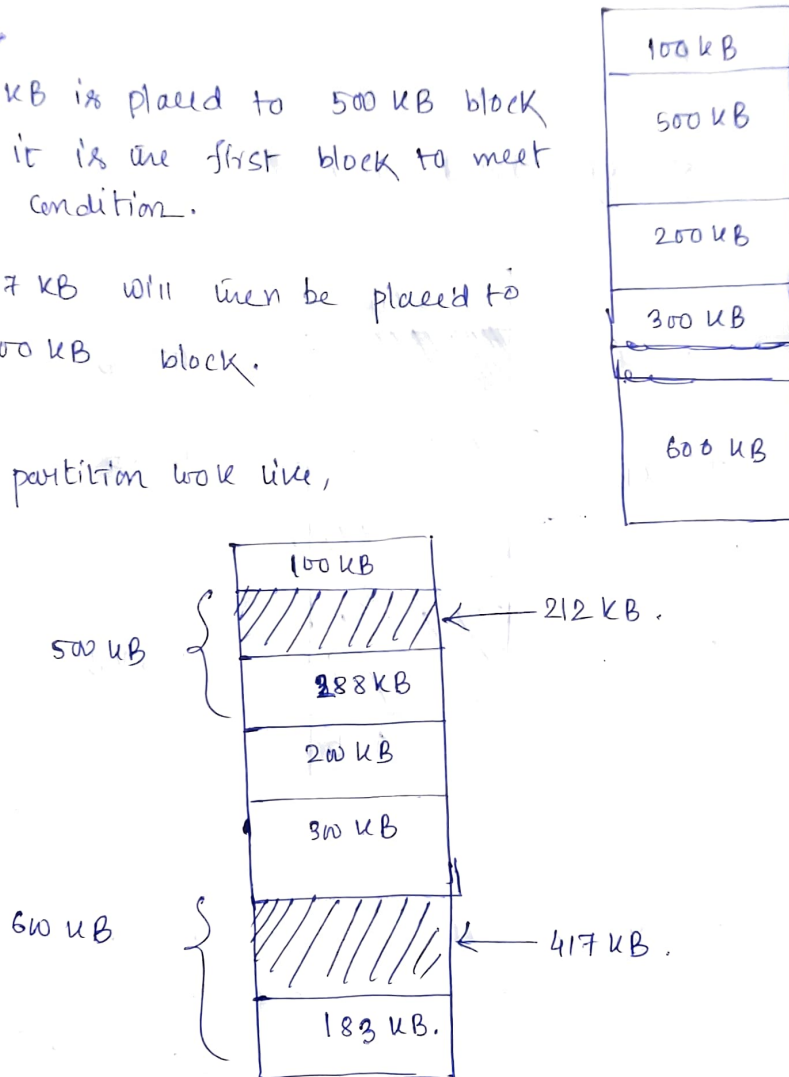 KB is placed to 500 KB block
it is the first block to meet
condition.
7 KB will then be placed to
00 KB block.
partition look like,
100 KB
500 KB
200 KB
300 KB
600 KB
100 KB
212 KB.
500 KB
288 KB
200 KB
300 KB
600 KB
417 KB.
183 KB.